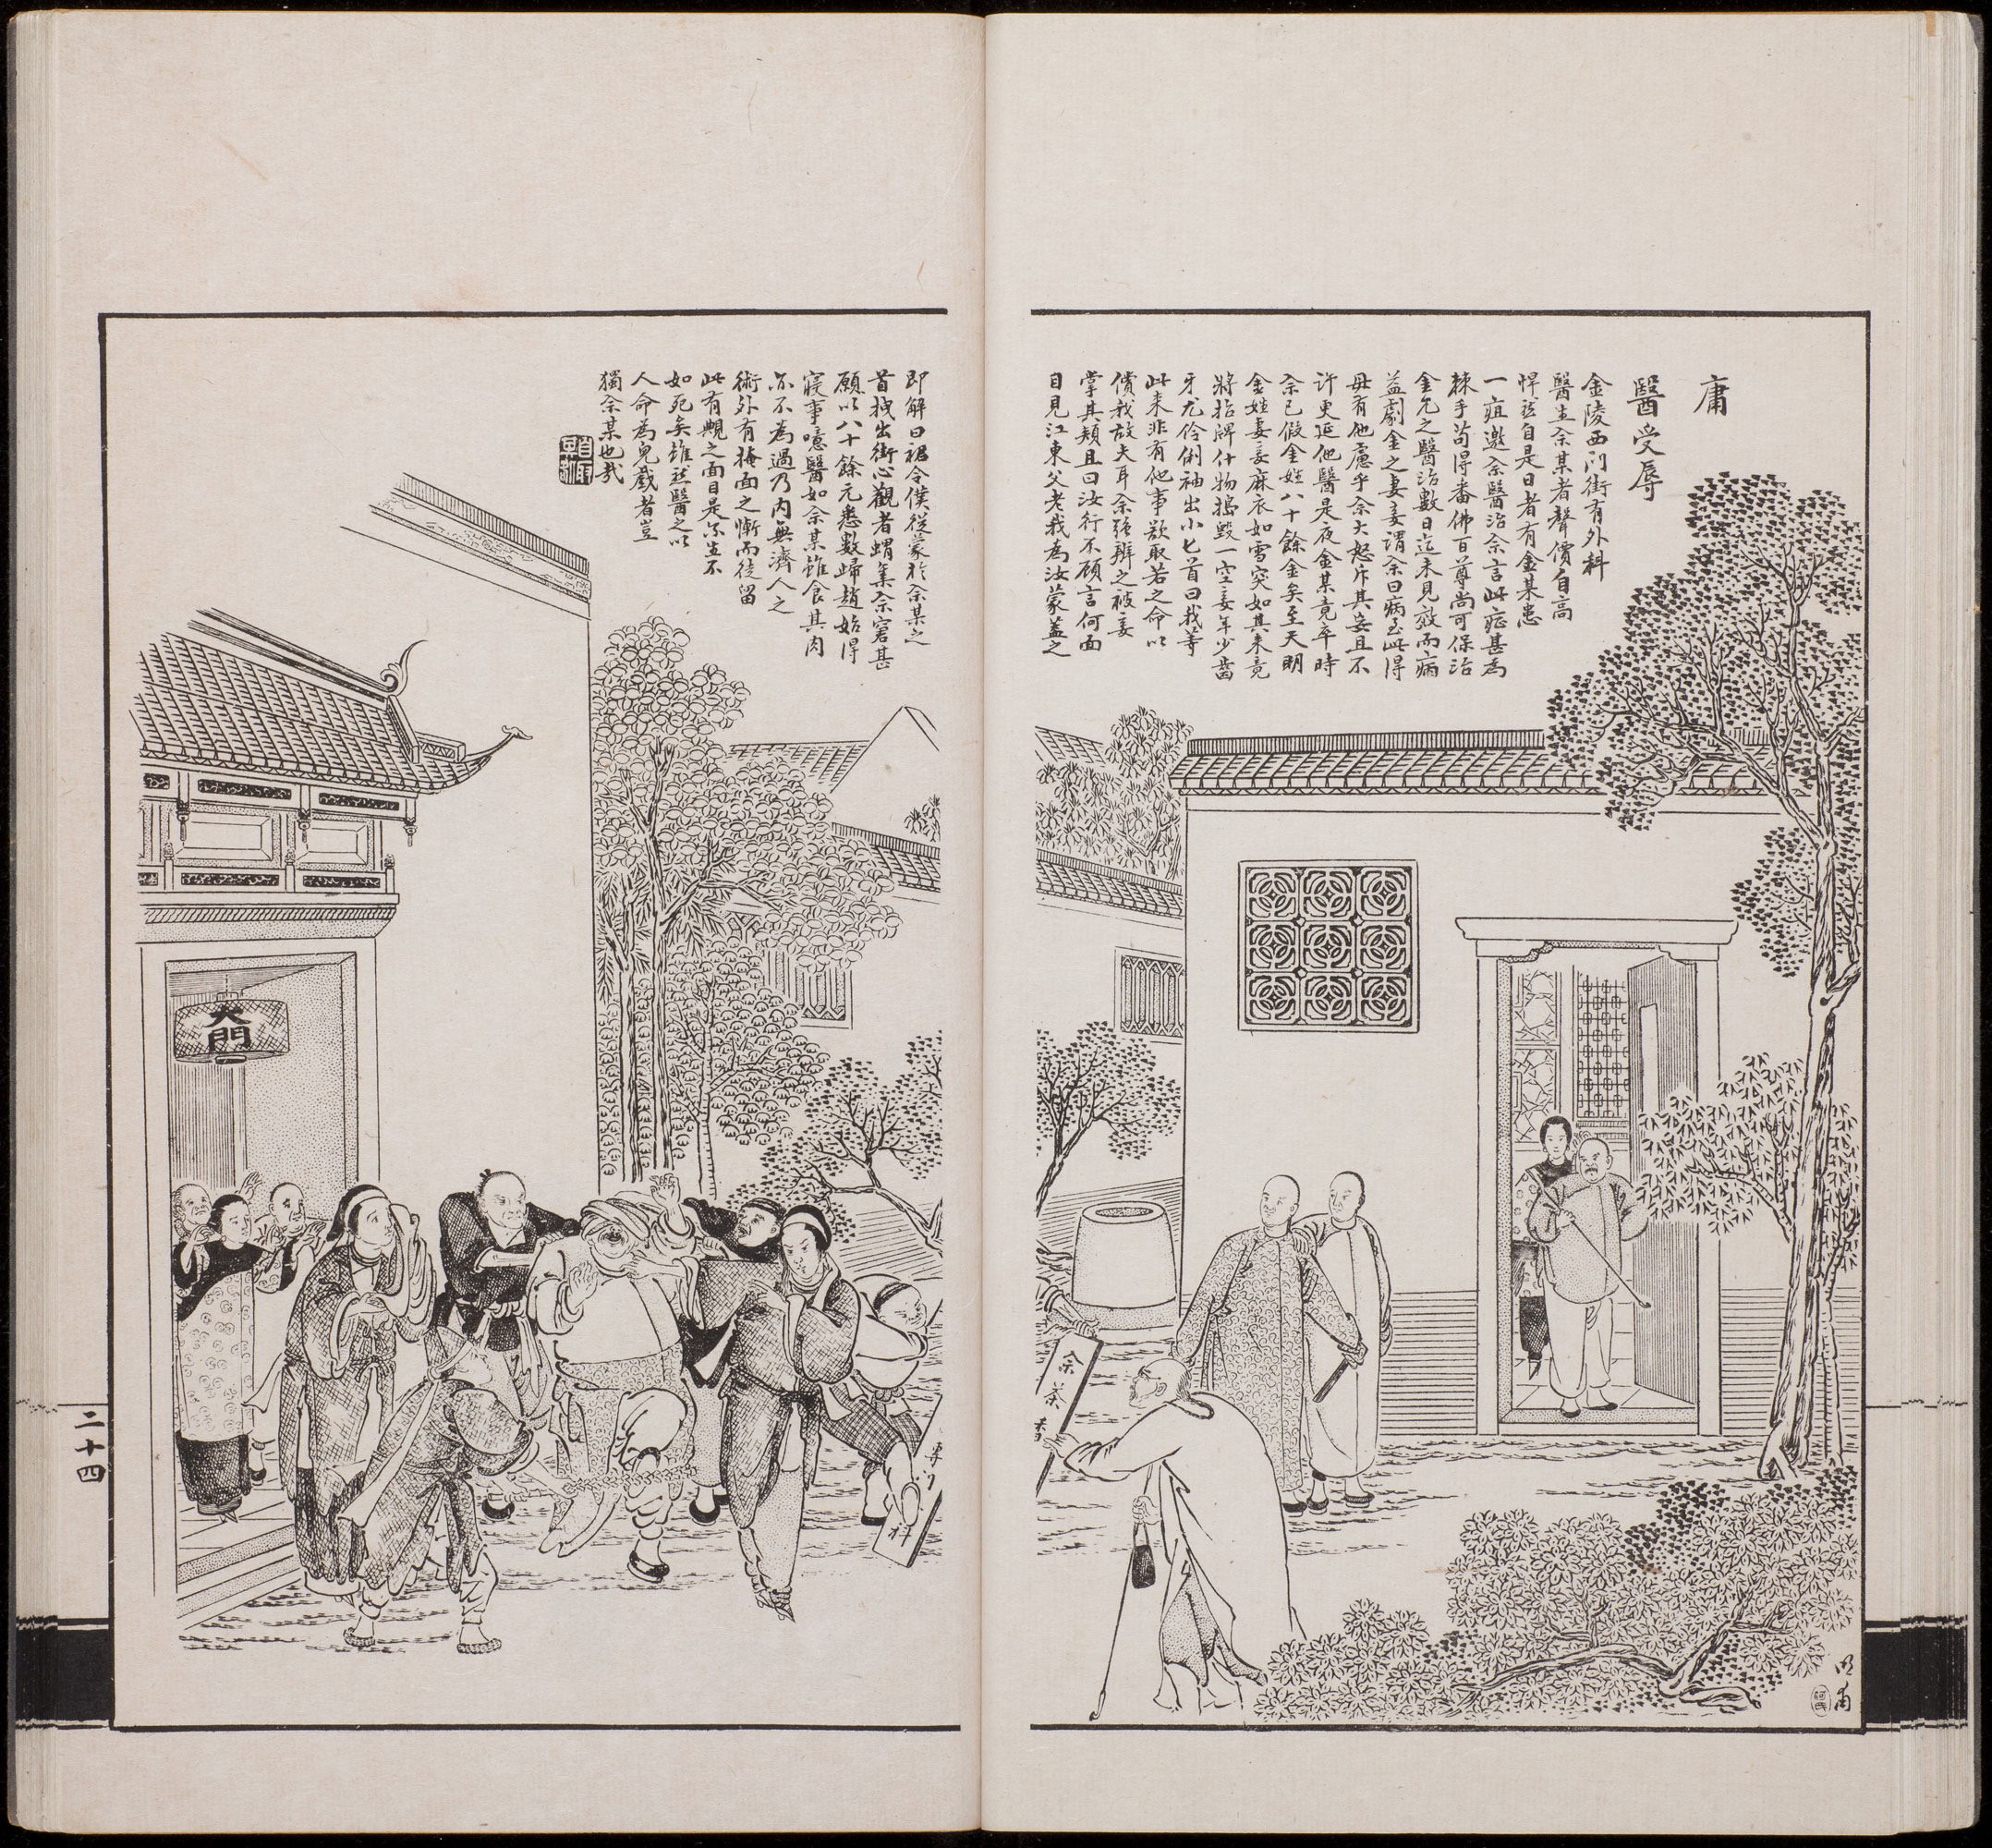 庸
醫受辱
金陵西門街有外科
醫生余某者聲價自高
悍然自是日者有金某患
一疽邀余醫治余言此症甚為
棘手苟得番佛百尊尚可保治
金允之醫治數日迄未見效而病
益劇金之妻妾謂余曰病至此得
毋有他慮乎余大怒斥其妄且不
許更延他醫是夜金某竟卒時
余已假金姓八十餘金矣至天明
金姓妻妾麻衣如雪突如其来竟
將招牌什物搗毀一空妾年少齒
牙尤伶俐袖出小匕首曰我等
此来非有他事欲取若之命以
償我故夫耳余強辨之被妾
掌其頰且曰汝行不顧言何面
目見江東父老我為汝蒙蓋之
即解白裙令僕從蒙於余某之
首拽出街心觀者蝟集余窘甚
願以八十餘元悉數歸趙始得
寢事噫醫如余某雖食其肉
亦不為過乃内無濟人之
術外有掩面之慚而徒留
此有靦之面目是亦生不
如死矣雖然醫之以
人命為兒戲者豈
獨余某也哉
大門
余
專門
科
明甫
二十四